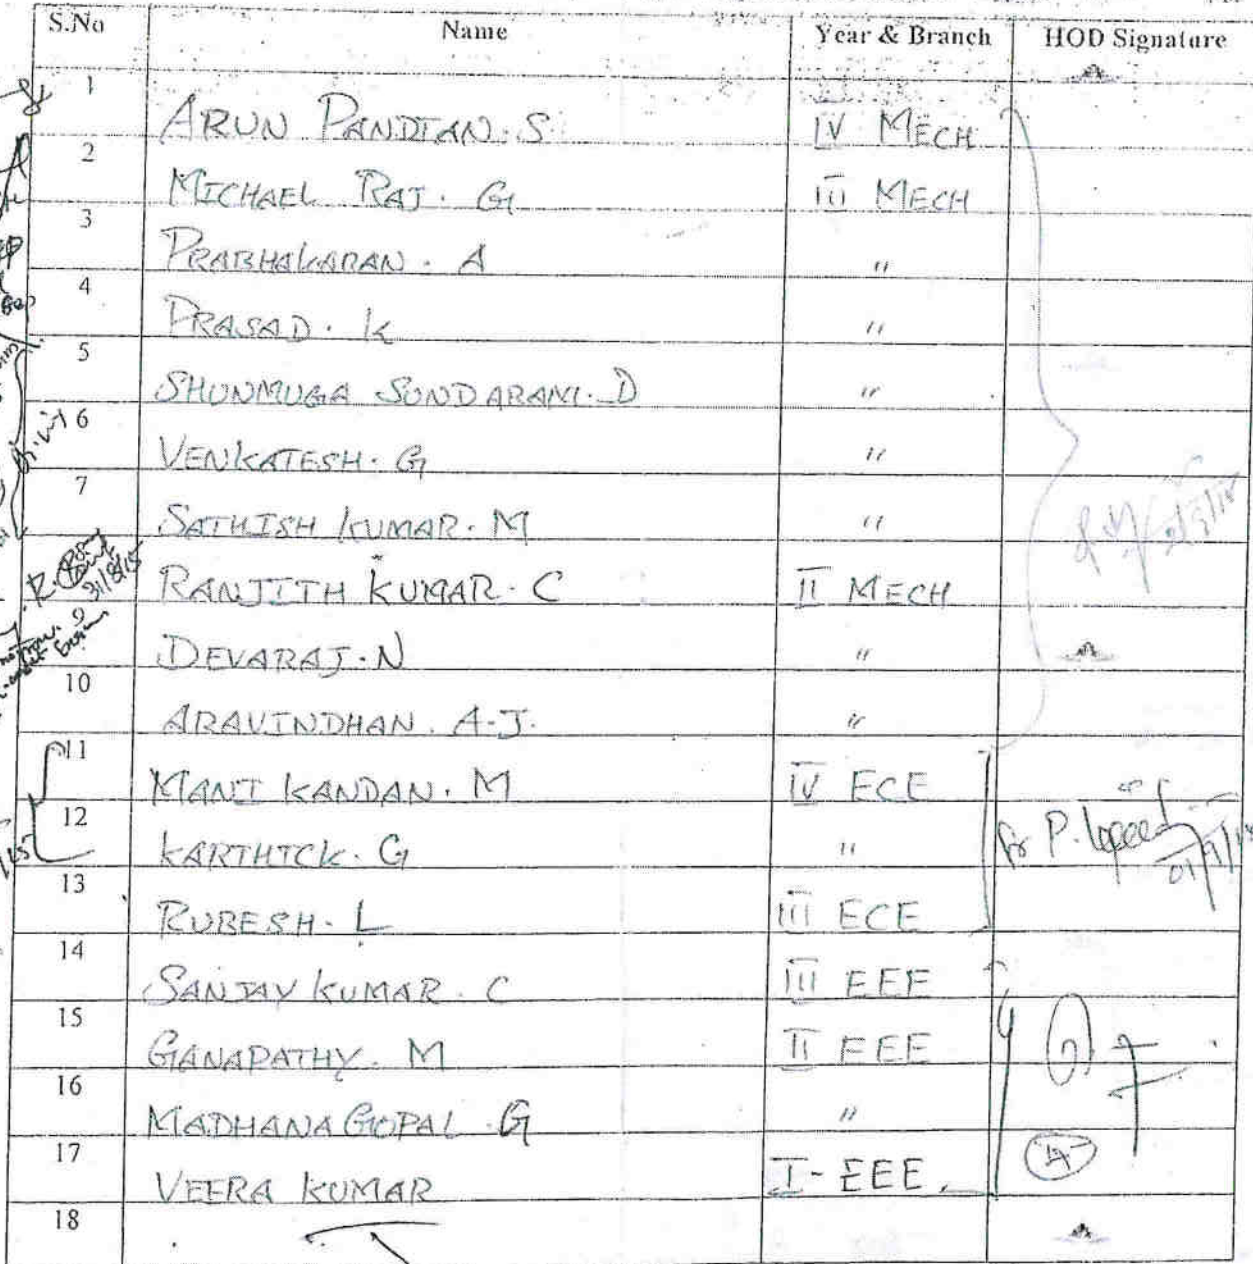 S.No Name Year & Branch HOD Signature
1 ARUN PANDIAN. S. IV MECH
2 MICHAEL RAJ. G III MECH
3 PRABHAKARAN. A "
4 PRASAD. K "
5 SHUNMUGA SUNDARAM. D "
6 VENKATESH. G "
7 SATHISH KUMAR. M "
RANJITH KUMAR. C II MECH
DEVARAJ. N "
10 ARAVINDHAN. A.J. "
11 MANI KANDAN. M IV ECE
12 KARTHICK. G "
13 RUBESH. L III ECE
14 SANJAY KUMAR. C III EEE
15 GANAPATHY. M II EEE
16 MADHANA GOPAL G "
17 VEERA KUMAR I - EEE.
18
31/8/15